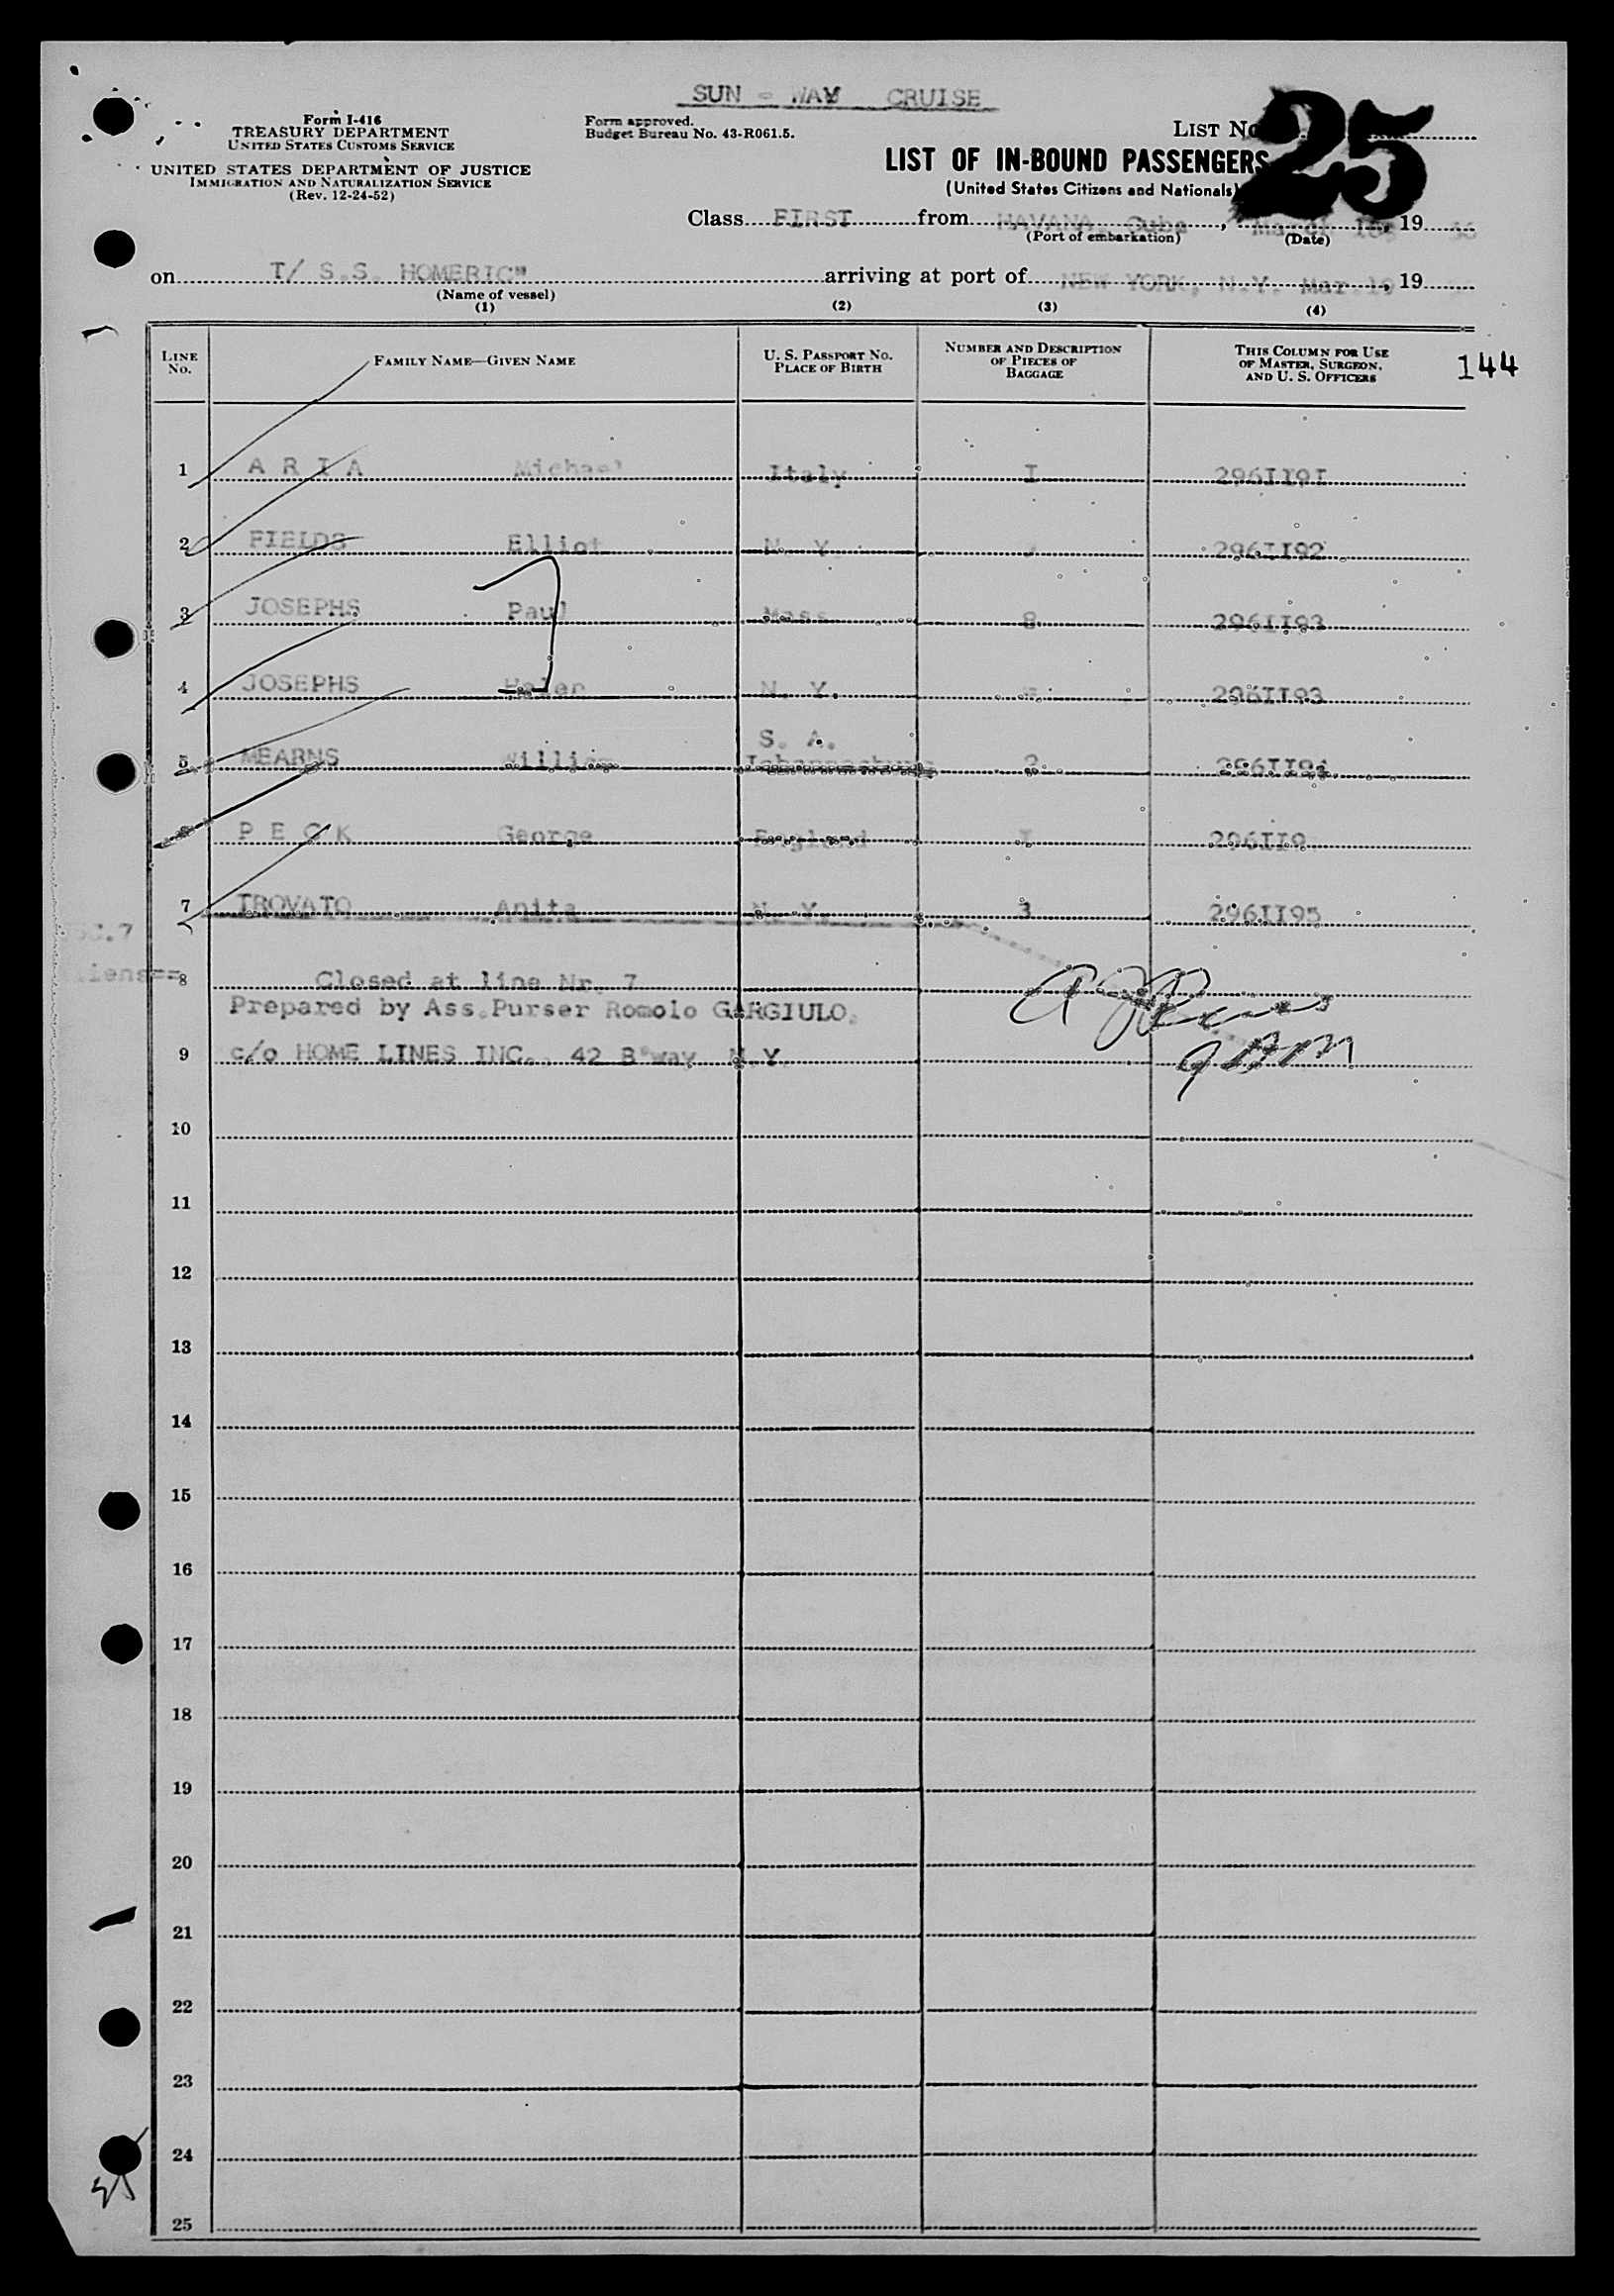 SUN - WAY CRUISE
Form I-416
TREASURY DEPARTMENT
UNITED STATES CUSTOMS SERVICE
UNITED STATES DEPARTMENT OF JUSTICE
IMMIGRATION AND NATURALIZATION SERVICE
(Rev. 12-24-52)
Form approved.
Budget Bureau No. 43-R061.5.
LIST No. 25
LIST OF IN-BOUND PASSENGERS
(United States Citizens and Nationals)
Class FIRST from HAVANA, Cuba, March, 19
(Port of embarkation) (Date)
on T/ S.S. HOMERIC" arriving at port of NEW YORK, N.Y. Mar.19, 19
(Name of vessel)
(1) (2) (3) (4)
LINE No. FAMILY NAME—GIVEN NAME U. S. PASSPORT NO. PLACE OF BIRTH NUMBER AND DESCRIPTION OF PIECES OF BAGGAGE THIS COLUMN FOR USE OF MASTER, SURGEON, AND U. S. OFFICERS 144
1 A R I A Michael Italy I 296II9I
2 FIELDS Elliot N. Y. 296II92
3 JOSEPHS Paul Mass 8 296II93
4 JOSEPHS Helen N. Y. 296II93
S. A.
5 MEARNS William Johannesburg 2 296II94
6 P E C K George England I 296II9
7 TROVATO Anita N. Y. 3 296II95
8 Closed at line Nr. 7
Prepared by Ass.Purser Romolo GARGIULO.
9 c/o HOME LINES INC., 42 B'way N.Y.
10
11
12
13
14
15
16
17
18
19
20
21
22
23
24
25